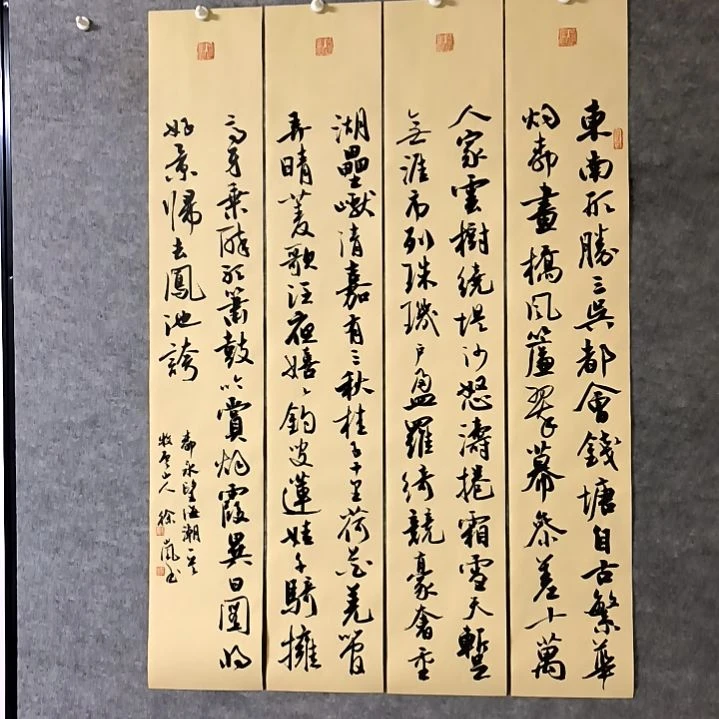 東南形勝三吳都會錢塘自古繁華
烟柳畫橋風簾翠幕參差十萬
人家雲樹繞堤沙怒濤捲霜雪天塹
無涯市列珠璣戶盈羅綺競豪奢重
湖壘巘清嘉有三秋桂子十里荷花羌管
弄晴菱歌泛夜嬉〻釣叟蓮娃千騎擁
高牙乘醉聽簫鼓吟賞烟霞異日圖將
好景歸去鳳池誇
柳永望海潮一首
山人徐嵐書